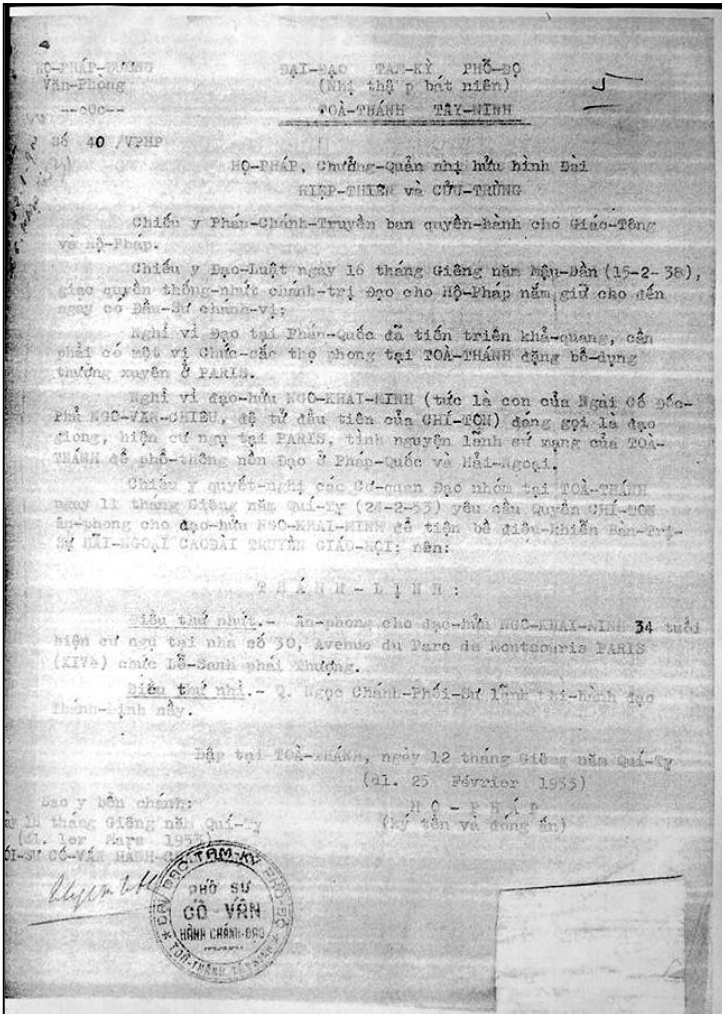 HỘ-PHÁP-ĐƯỜNG
Văn-Phòng
--oOo--
Số 40 /VPHP
ĐẠI-ĐẠO TAM-KỲ PHỔ-ĐỘ
(Nhị thập bát niên)
TOÀ-THÁNH TÂY-NINH
HỘ-PHÁP, Chưởng-Quản nhị hữu hình Đài
HIỆP-THIÊN và CỬU-TRÙNG
Chiếu y Pháp-Chánh-Truyền ban quyền-hành cho Giáo-Tông
và Hộ-Pháp.
Chiếu y Đạo-Luật ngày 16 tháng Giêng năm Mậu-Dần (15-2-38),
giao quyền thống-nhứt chánh-trị Đạo cho Hộ-Pháp nắm giữ cho đến
ngày có Đầu-Sư chánh-vị;
Nghỉ vì Đạo tại Pháp-Quốc đã tiến triển khả-quang, cần
phải có một vị Chức-sắc thọ phong tại TOÀ-THÁNH đặng bổ-dụng
thường xuyên ở PARIS.
Nghỉ vì đạo-hữu NGÔ-KHAI-MINH (tức là con của Ngài Cố Đốc-
Phủ NGÔ-VĂN-CHIÊU, đệ tử đầu tiên của CHÍ-TÔN) đáng gọi là đạo
dòng, hiện cư ngụ tại PARIS, tình nguyện lãnh sứ mạng của TOÀ-
THÁNH để phổ-thông nền Đạo ở Pháp-Quốc và Hải-Ngoại.
Chiếu y quyết-nghị các Cơ-quan Đạo nhóm tại TOÀ-THÁNH
ngày 11 tháng Giêng năm Quí-Tỵ (24-2-53) yêu cầu Quyền CHÍ-TÔN
ân-phong cho đạo-hữu NGÔ-KHAI-MINH để tiện bề điều-khiển Bàn-Trị-
Sự HẢI-NGOẠI CAOĐÀI TRUYỀN GIÁO-HỘI; nên:
THÁNH-LỊNH:
Điều thứ nhứt.- Ân-phong cho đạo-hữu NGÔ-KHAI-MINH 34 tuổi
hiện cư ngụ tại nhà số 30, Avenue du Parc de Montsouris PARIS
(XIVè) chức Lễ-Sanh phái Thượng.
Điều thứ nhì.- Q. Ngọc Chánh-Phối-Sư lãnh thi-hành đạo
Thánh-Lịnh nầy.
Lập tại TOÀ-THÁNH, ngày 12 tháng Giêng năm Quí-Tỵ
(dl. 25 Février 1953)
HỘ-PHÁP
(ký tên và đóng ấn)
Sao y bổn chánh:
16 tháng Giêng năm Quí-Tỵ
(dl. 1er Mars 1953)
CỐ-VẤN HÀNH-
ĐẠI-ĐẠO-TAM-KỲ-PHỔ-ĐỘ
PHỐ SƯ
CỐ VẤN
HÀNH CHÁNH-ĐẠO
TOÀ-THÁNH TÂY-NINH